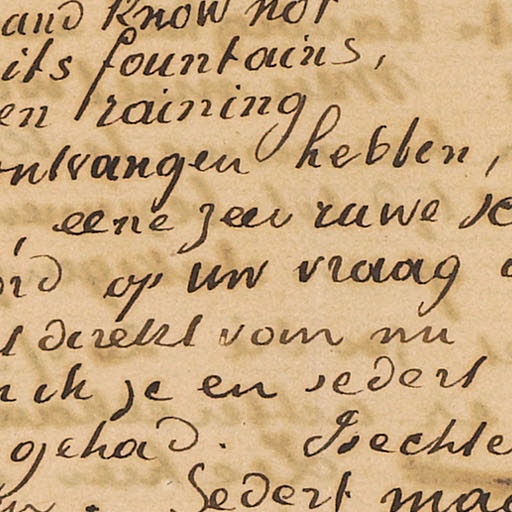 and know not
its fountains,
en raining
ontvangen hebben,
, eene zeer ruwe sc
op uw vraag
direkt vom nu
ik je en sedert
gehad. Slechte
. Sedert maa